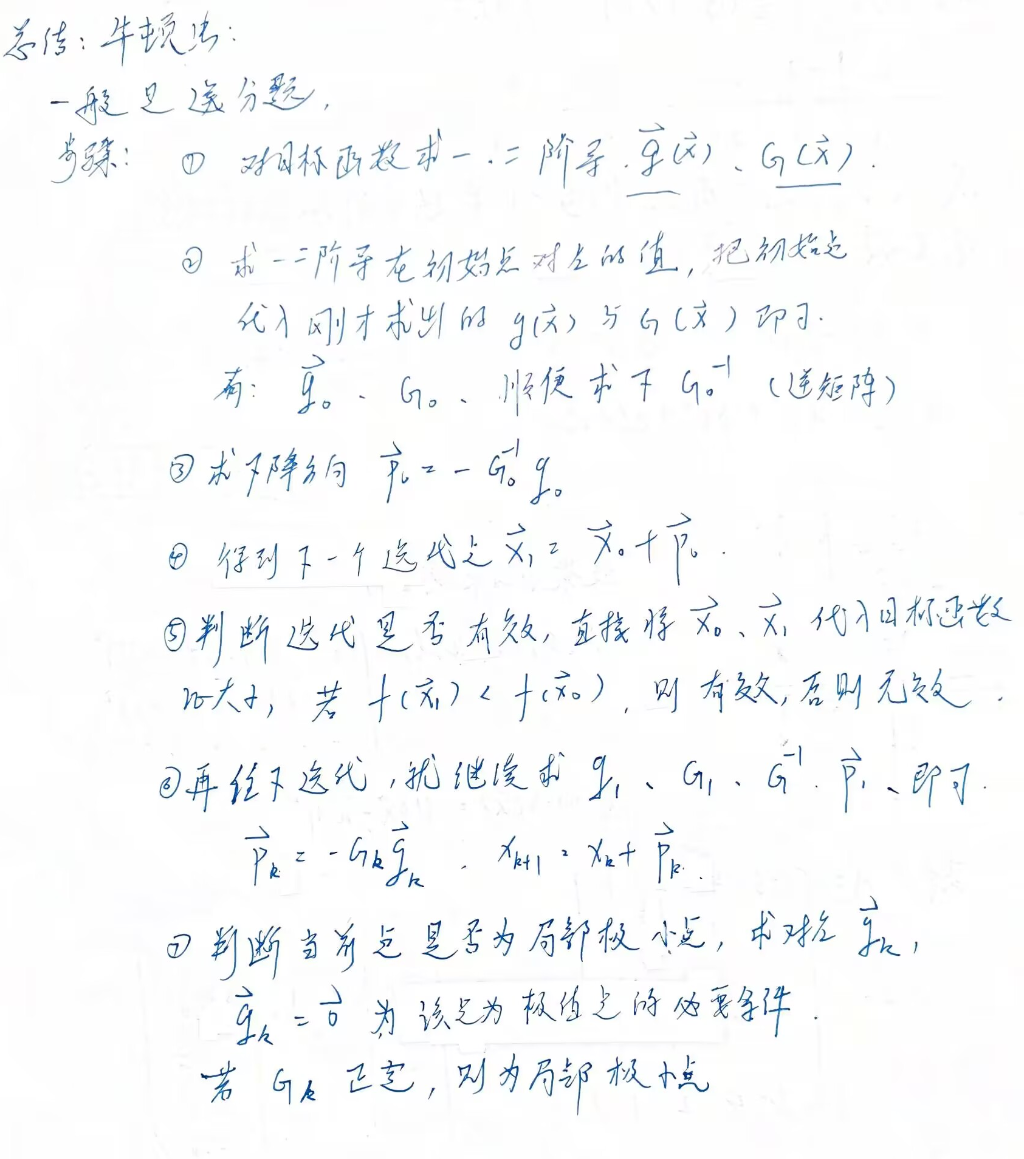 总结：牛顿法：
一般是送分题，
步骤：① 对目标函数求一.二阶导.g⃗(x⃗)、G(x⃗).
② 求一二阶导在初始点对应的值，把初始点
代入刚才求出的 g(x⃗) 与 G(x⃗) 即可.
有：g⃗₀、G₀、顺便求下 G₀⁻¹（逆矩阵）
③ 求下降方向 p⃗₀ = - G₀⁻¹ g₀
④ 得到下一个迭代点 x⃗₁ = x⃗₀ + p⃗₀.
⑤ 判断迭代是否有效，直接将 x⃗₀、x⃗₁ 代入目标函数
比大小，若 f(x⃗₁) < f(x⃗₀)，则有效，否则无效.
⑥ 再往下迭代，就继续求 g₁、G₁、G⁻¹.p⃗₁、即可.
p⃗ₖ = -Gₖg⃗ₖ . xₖ₊₁ = xₖ + p⃗ₖ.
⑦ 判断当前点是否为局部极小点，求对应 g⃗ₖ，
g⃗ₖ = 0⃗ 为该点为极值点的必要条件.
若 Gₖ 正定，则为局部极小点